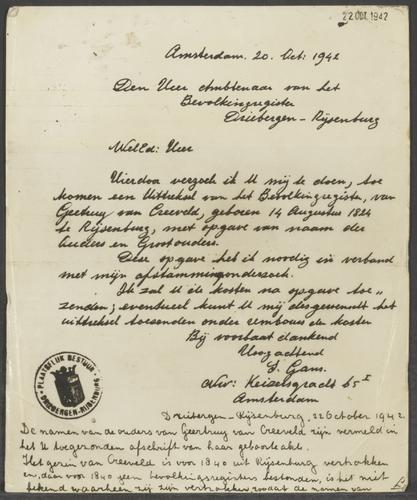 22 OCT. 1942
Amsterdam. 20. Oct: 1942
Den Heer Ambtenaar van het
Bevolkingregister
Driebergen - Rijsenburg
WelEd: Heer
Hierdoor verzoek ik U mij te doen, toe
komen een Uittreksel van het Bevolkingregister, van
Geertruy van Creeveld, geboren 14 Augustus 1824
te Rijsenburg, met opgave van naam der
ouders en Grootouders.
Deze opgave heb ik noodig in verband
met mijn afstammingonderzoek.
Ik zal U de kosten na opgave toe„
zenden, eventueel kunt U mij desgewenscht het
uittreksel toezenden onder rembours de kosten
Bij voorbaat dankend
Hoogachtend
S. Gans.
Nw: Keizersgracht 65 I
Amsterdam
PLAATSELIJK BESTUUR
DRIEBERGEN-RIJSENBURG
Driebergen - Rijsenburg, 22 October 1942.
De namen van de ouders van Geertruy van Creveld zijn vermeld in
het U toegezonden afschrift van haar geboorteakte.
Het gezin van Creveld is voor 1840 uit Rijsenburg vertrokken
en, daar voor 1840 geen bevolkingsregisters bestonden, is het niet
bekend waarheen zij zijn vertrokken, zoodat de namen van